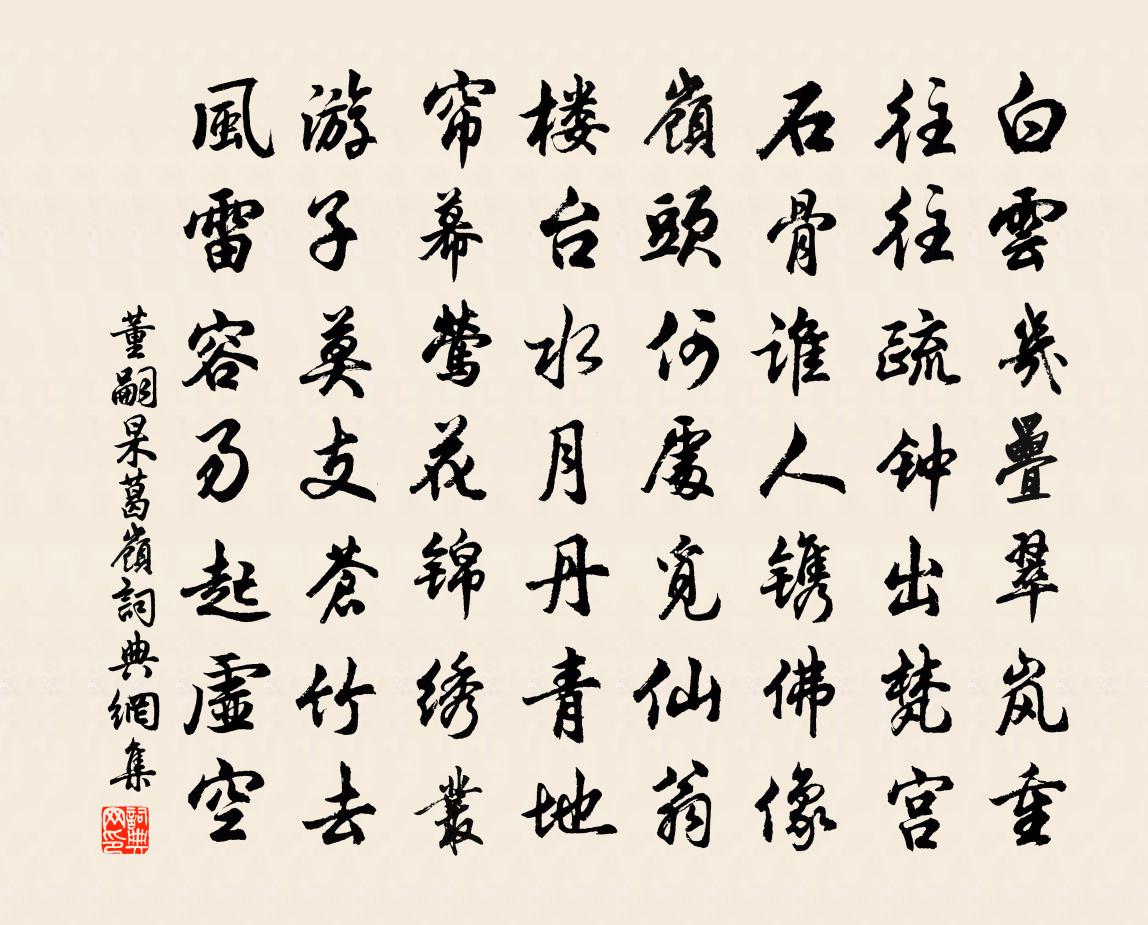 白雲幾疊翠岚重
往往疏钟出梵宫
石骨谁人镌佛像
嶺頭何處觅仙翁
楼台水月丹青地
帘幕鶯花锦绣叢
游子莫支蒼竹去
風雷容易起虛空
董嗣杲葛嶺詞典網集
詞典网印